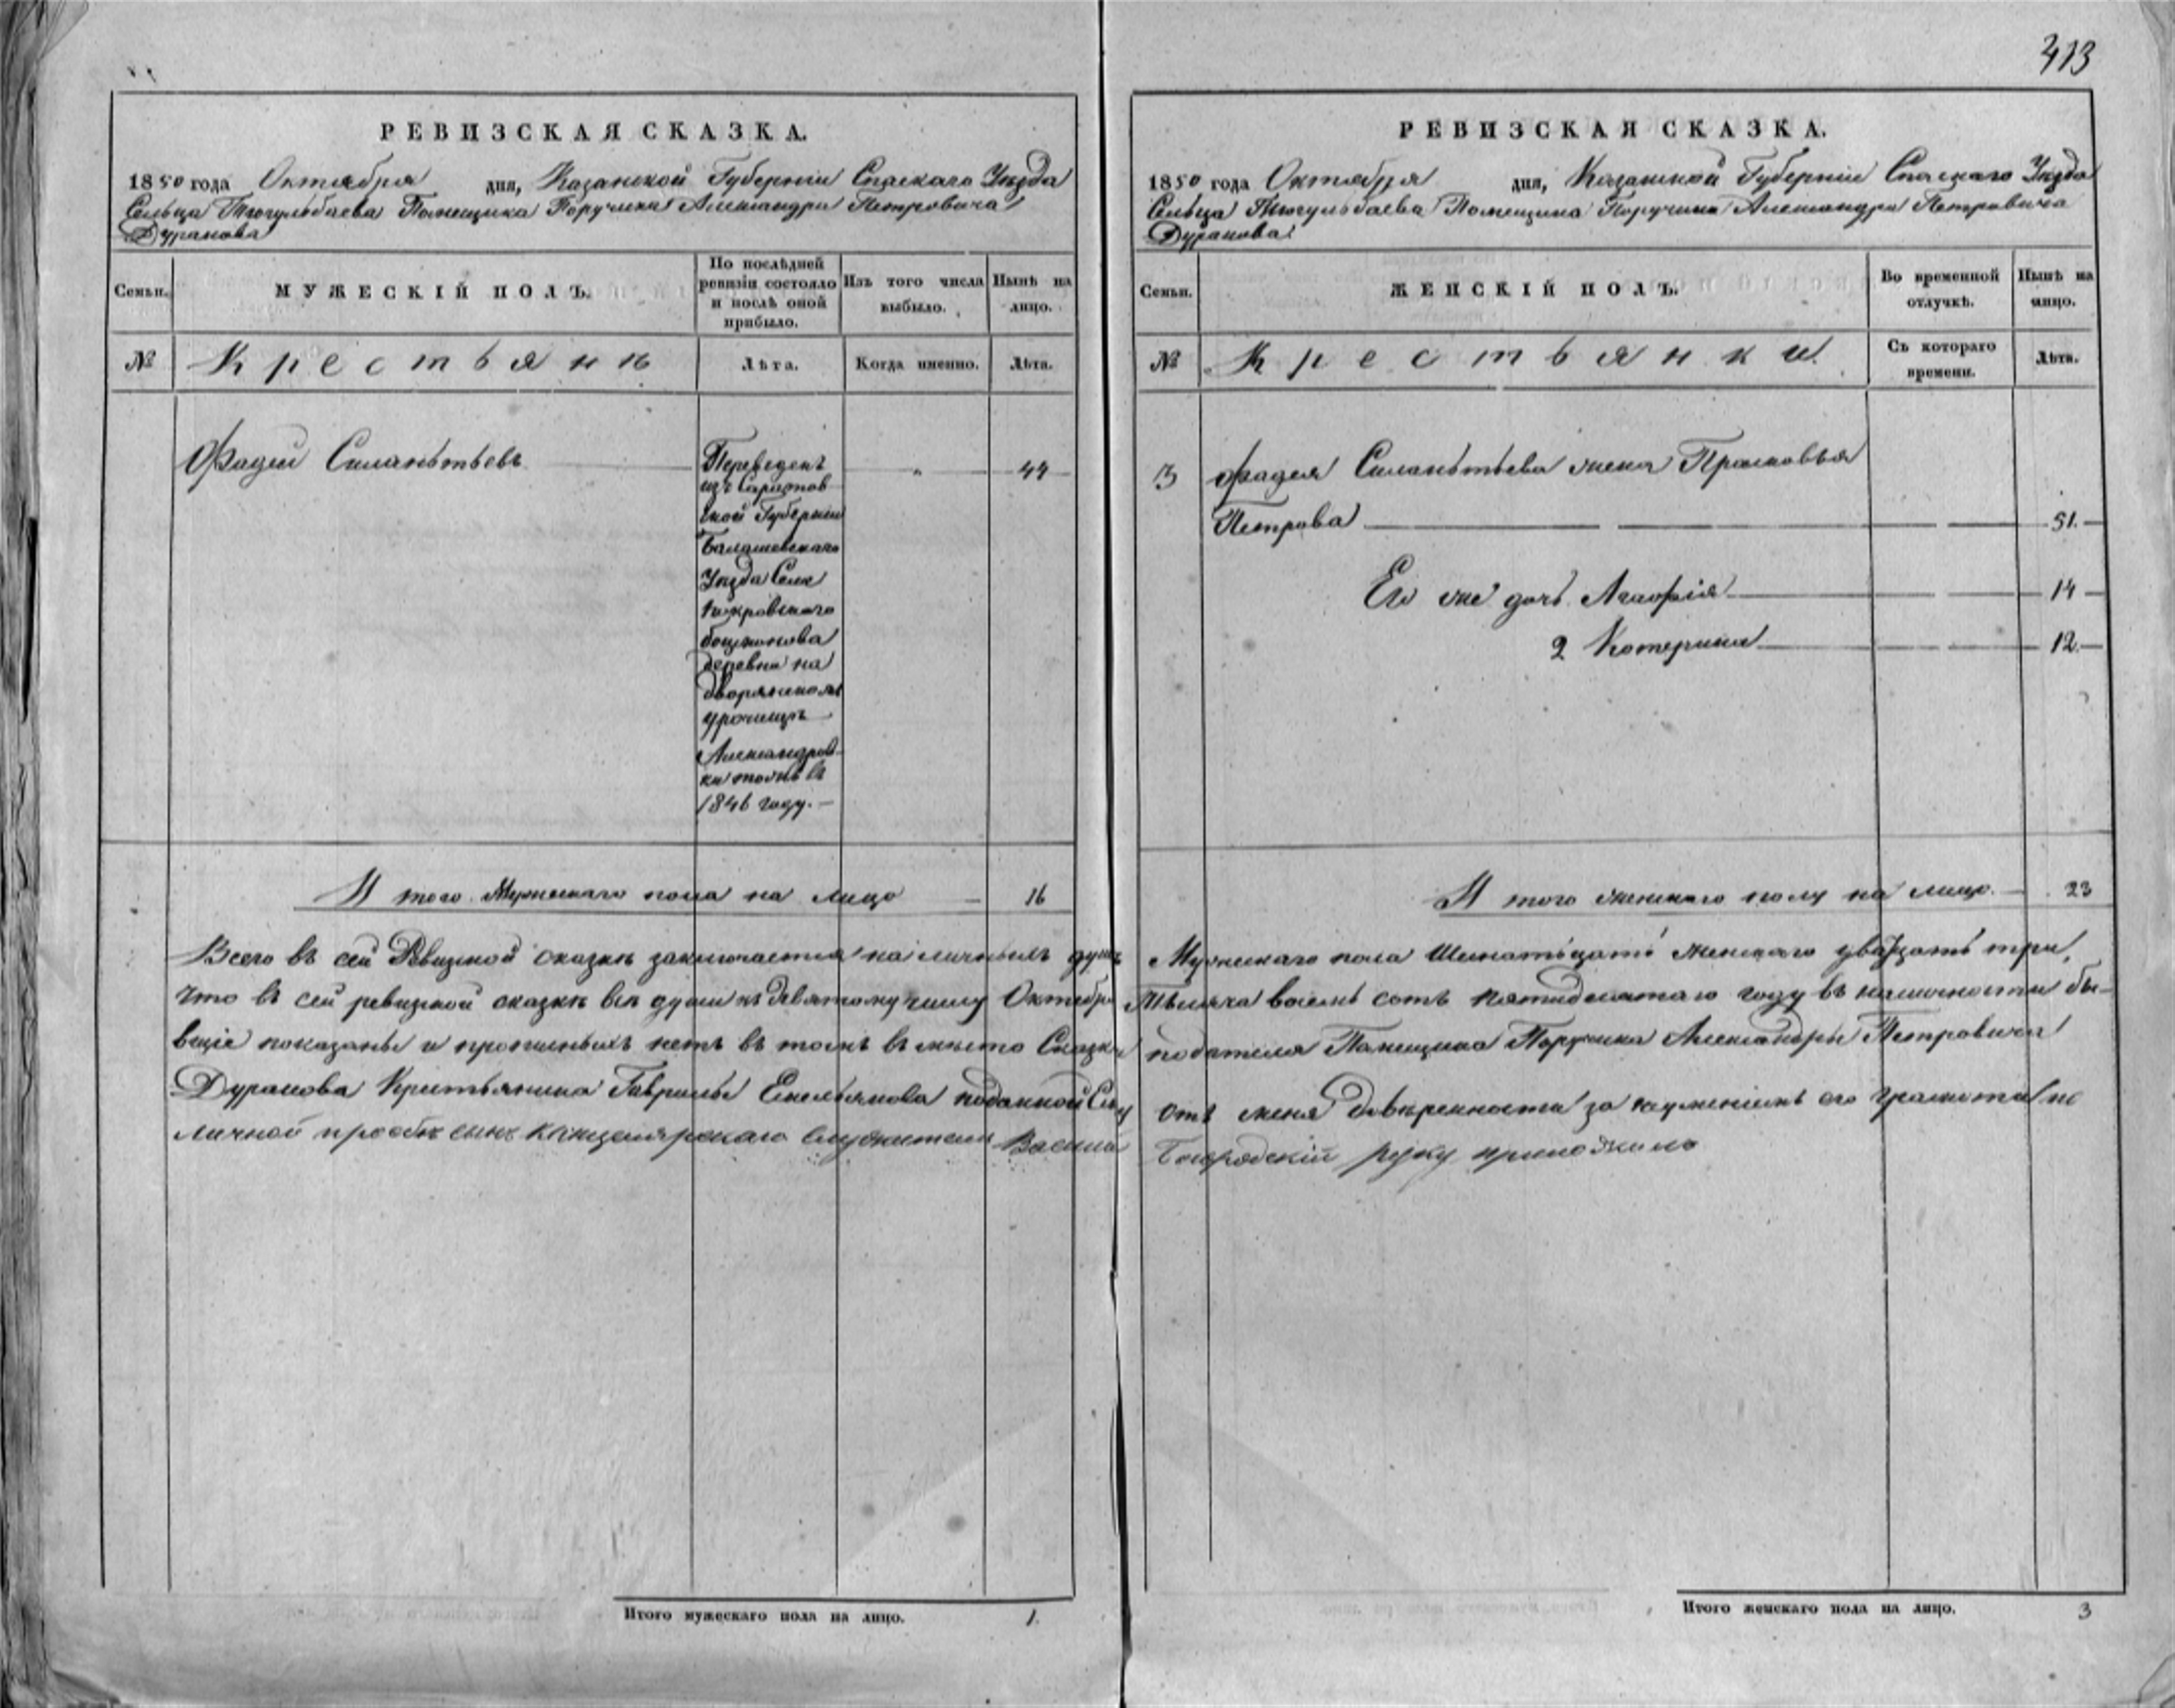 413
РЕВИЗСКАЯ СКАЗКА.
1850 года Октября дня, Казанской Губерніи Спаскаго Уѣзда
Сельца Тюгульбаева Помещика Поручика Александра Петровича
Дуранова
Семьи.
МУЖЕСКІЙ ПОЛЪ.
По послѣдней
ревизіи состояло
и послѣ оной
прибыло.
Изъ того числа
выбыло.
Нынѣ на
лицо.
№
Крестьянъ
Лѣта.
Когда именно.
Лѣта.
Фадей Силантьевъ
Переведенъ
изъ Саратов
ской Губерніи
Балашевскаго
Уѣзда Села
Покровскаго
деревни на
дворянскомъ
урочищѣ
Александров
ки тожъ въ
1846 году.
"
44
И того Мужескаго пола на лицо 16
Всего въ сей Ревизской сказкѣ заключается наличныхъ душъ
что въ сей ревизской сказкѣ всѣ души къ девятому числу Октября
вщіе показаны и прописныхъ нетъ въ томъ въ место Сказки
Дуранова Критьянина Гаврилы Емельянова поданной Ему
личной прозбѣ сынъ канцелярскаго служителя Василій
Итого мужескаго пола на лицо. 1.
РЕВИЗСКАЯ СКАЗКА.
1850 года Октября дня, Казанской Губерніи Спаскаго Уѣзда
Сельца Тюгульбаева Помещика Поручика Александра Петровича
Дуранова
Семьи.
ЖЕНСКІЙ ПОЛЪ.
Во временной
отлучкѣ.
Нынѣ на
лицо.
№
Крестьянки
Съ котораго
времени.
Лѣта.
3 Фадея Силантьева жена Прасковья
Петрова 51.
Ево же дочь Агафія 14
2 Катерина 12.
И того женскаго полу на лицо. 23
Мужескаго пола Шеснатьцать женскаго двадцать три,
Тысяча восемь сотъ пятидесятаго году въ наличности бы-
подателя Помещика Поручика Александры Петровича
отъ меня доверенности за неумѣніемъ его грамоте по
руку приложилъ
Итого женскаго пола на лицо. 3